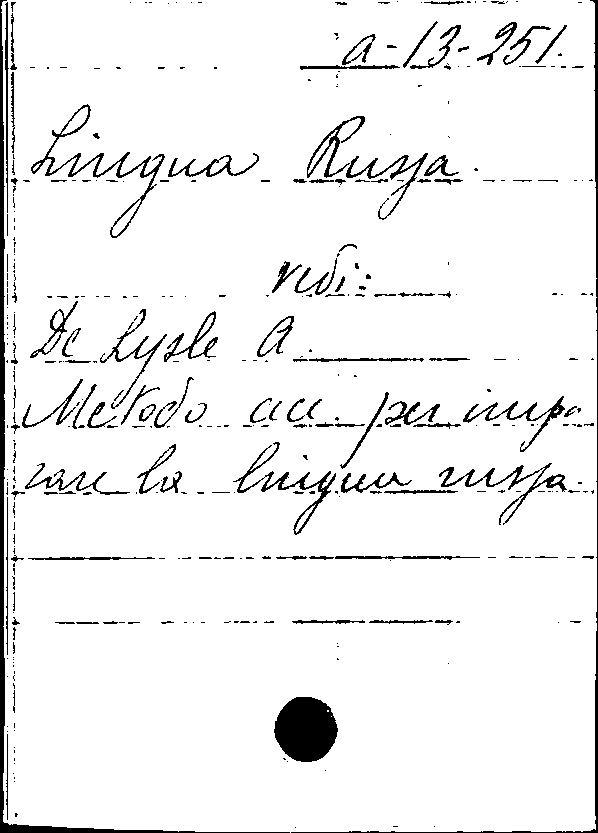 a-13-251.
Lingua Russa.
vedi:
De Lysle A.
Metodo acc. per impa
rare la lingua russa.